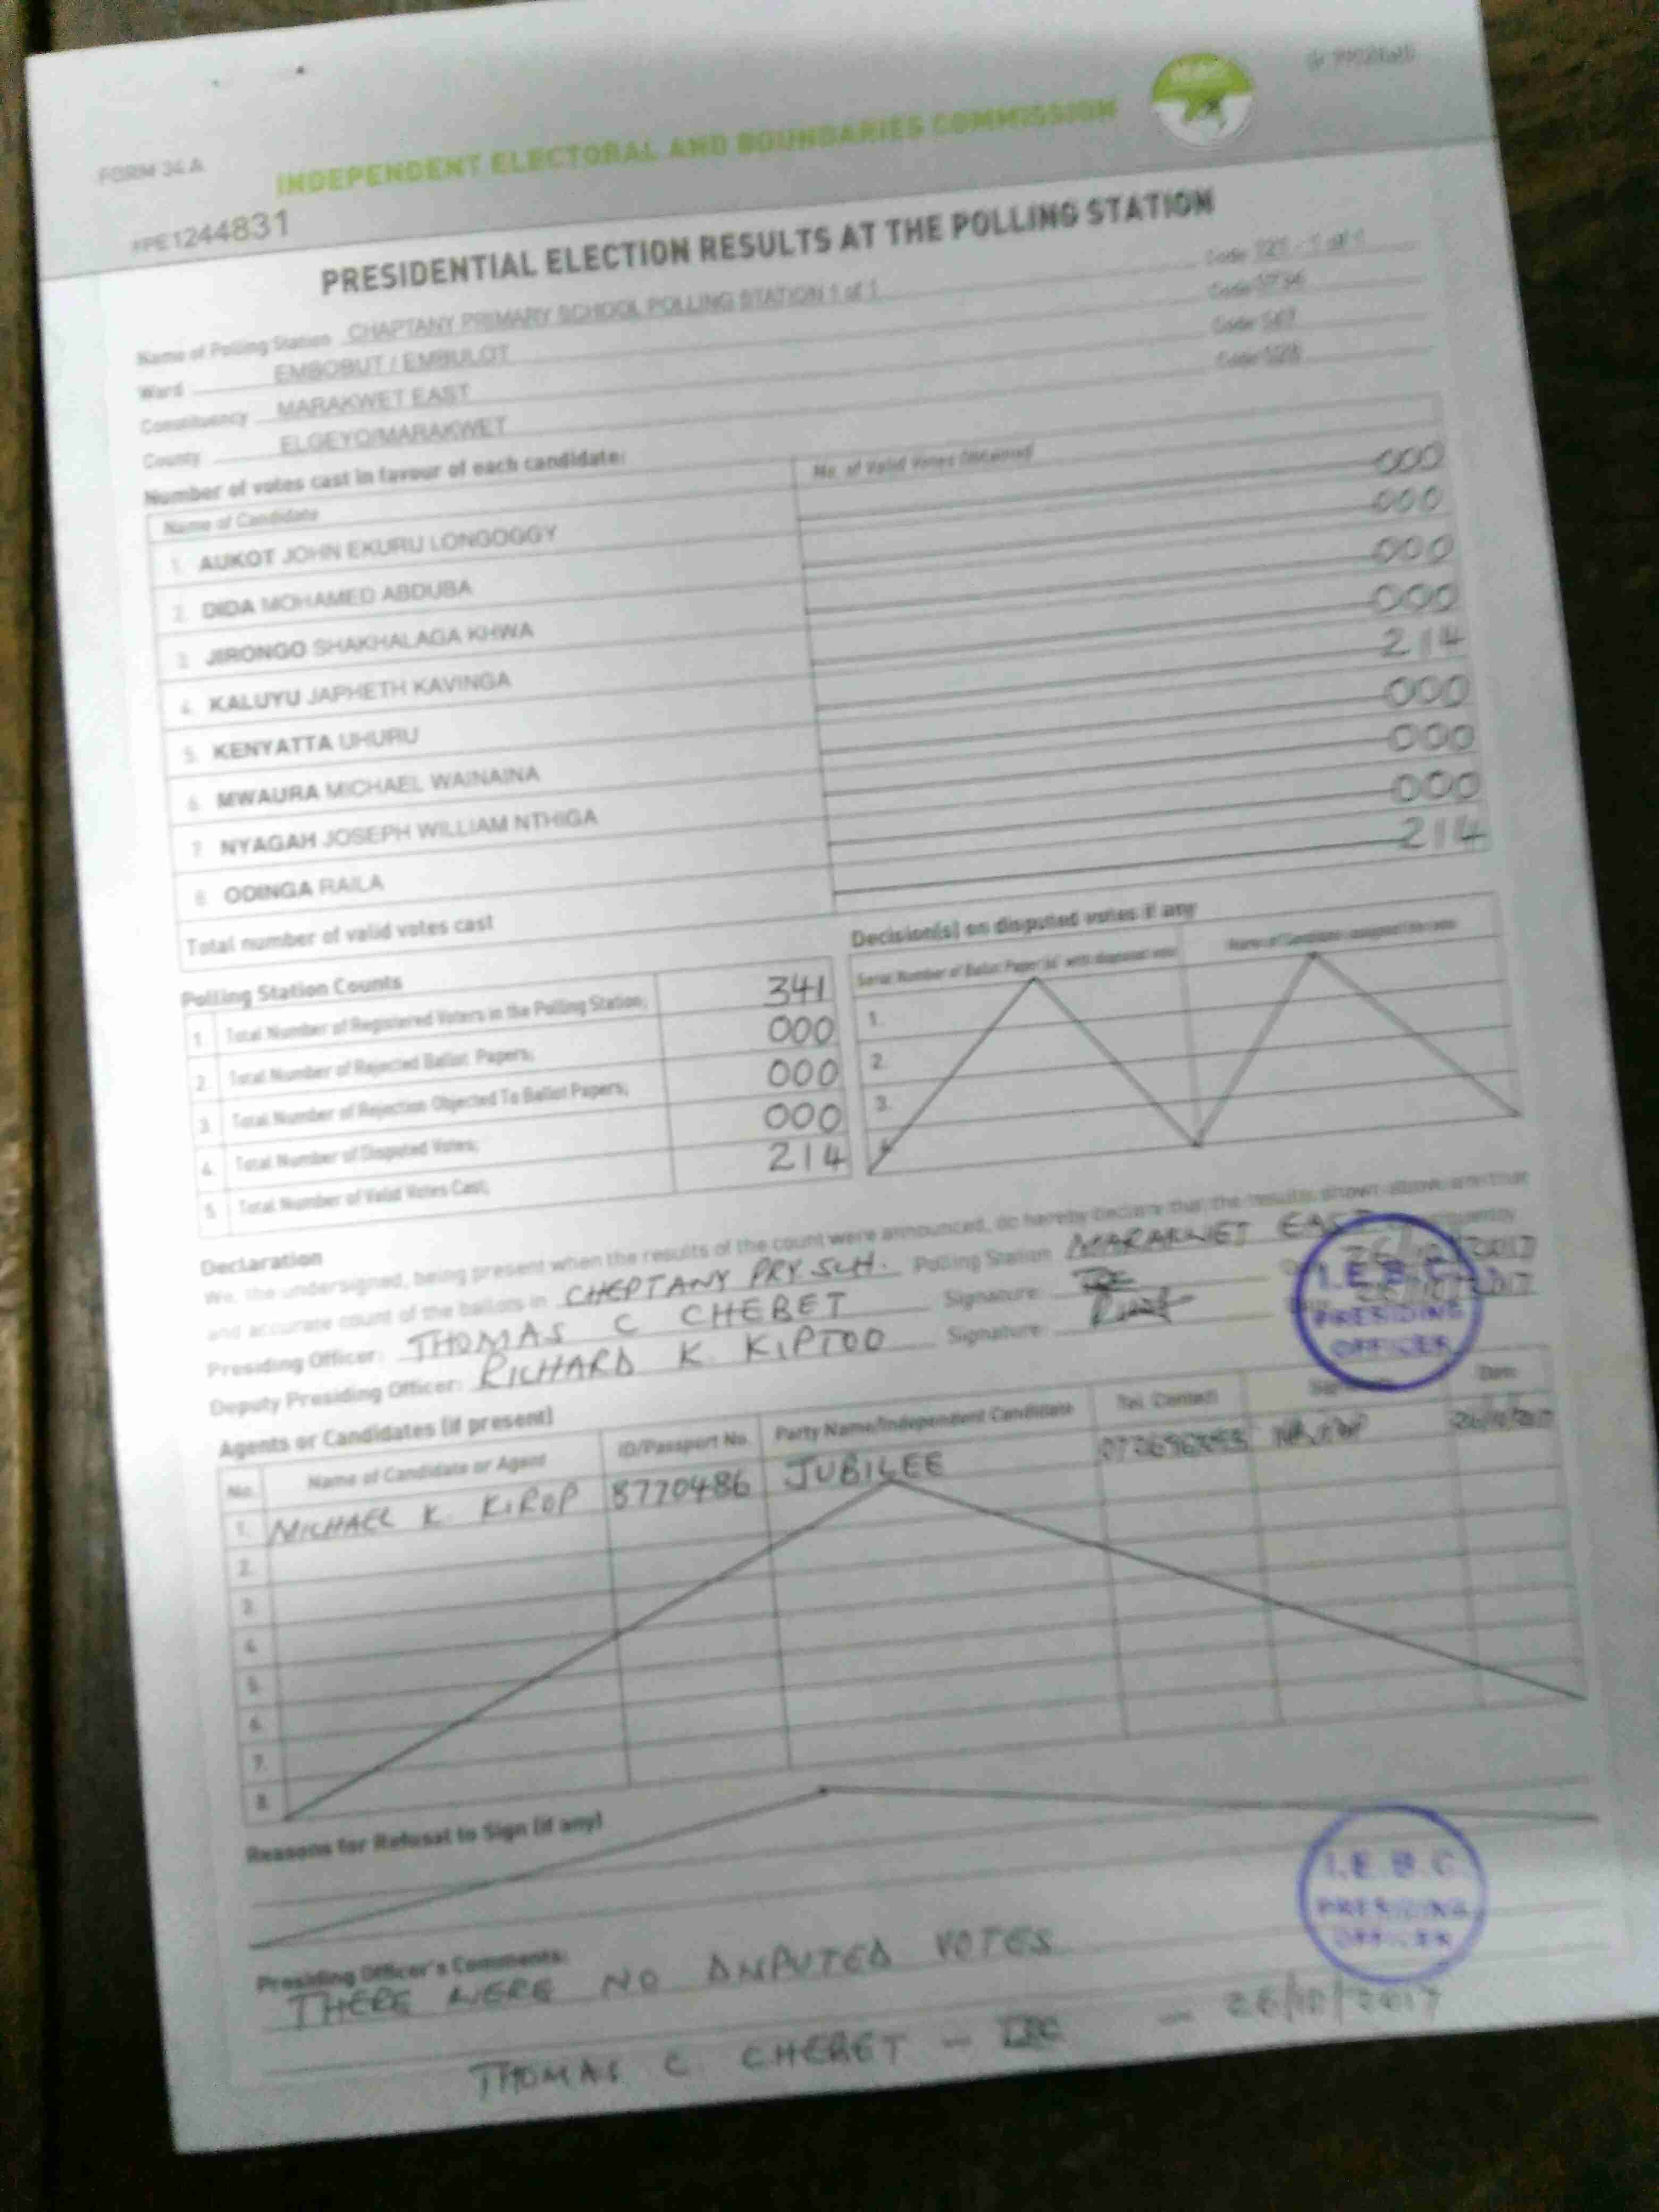 FORM 34 A
INDEPENDENT ELECTORAL AND BOUNDARIES COMMISSION
#PE1244831
PRESIDENTIAL ELECTION RESULTS AT THE POLLING STATION
Name of Polling Station CHAPTANY PRIMARY SCHOOL POLLING STATION 1 of 1 Code 1 of 1
Ward EMBOBUT / EMBULOT Code
Constituency MARAKWET EAST Code
County ELGEYO/MARAKWET Code
Number of votes cast in favour of each candidate:
Name of Candidate No. of Valid Votes Obtained
1. AUKOT JOHN EKURU LONGOGGY 000
2. DIDA MOHAMED ABDUBA 000
3. JIRONGO SHAKHALAGA KHWA 000
4. KALUYU JAPHETH KAVINGA 000
5. KENYATTA UHURU 214
6. MWAURA MICHAEL WAINAINA 000
7. NYAGAH JOSEPH WILLIAM NTHIGA 000
8. ODINGA RAILA 000
Total number of valid votes cast 214
Polling Station Counts
1. Total Number of Registered Voters in the Polling Station; 341
2. Total Number of Rejected Ballot Papers; 000
3. Total Number of Rejection Objected To Ballot Papers; 000
4. Total Number of Disputed Votes; 000
5. Total Number of Valid Votes Cast; 214
Decision(s) on disputed votes if any
Serial Number of Ballot Paper(s) with disputed vote Name of Candidate
1.
2.
3.
Declaration
We, the undersigned, being present when the results of the count were announced, do hereby declare that the results shown above are true
and accurate count of the ballots in CHEPTANY PRY SCH. Polling Station MARAKWET EAST
Presiding Officer: THOMAS C CHEBET Signature: 26/10/2017
Deputy Presiding Officer: RICHARD K. KIPTOO Signature: 26/10/2017
I.E.B.C
PRESIDING
OFFICER
Agents or Candidates (if present)
No. Name of Candidate or Agent ID/Passport No. Party Name/Independent Candidate Tel. Contact Date
1. MICHAEL K. KIROP 8770486 JUBILEE 26/10/2017
2.
3.
4.
5.
6.
7.
8.
Reasons for Refusal to Sign (if any)
I.E.B.C
PRESIDING
OFFICER
Presiding Officer's Comments:
THERE WERE NO DISPUTED VOTES
THOMAS C. CHEBET - - 26/10/2017